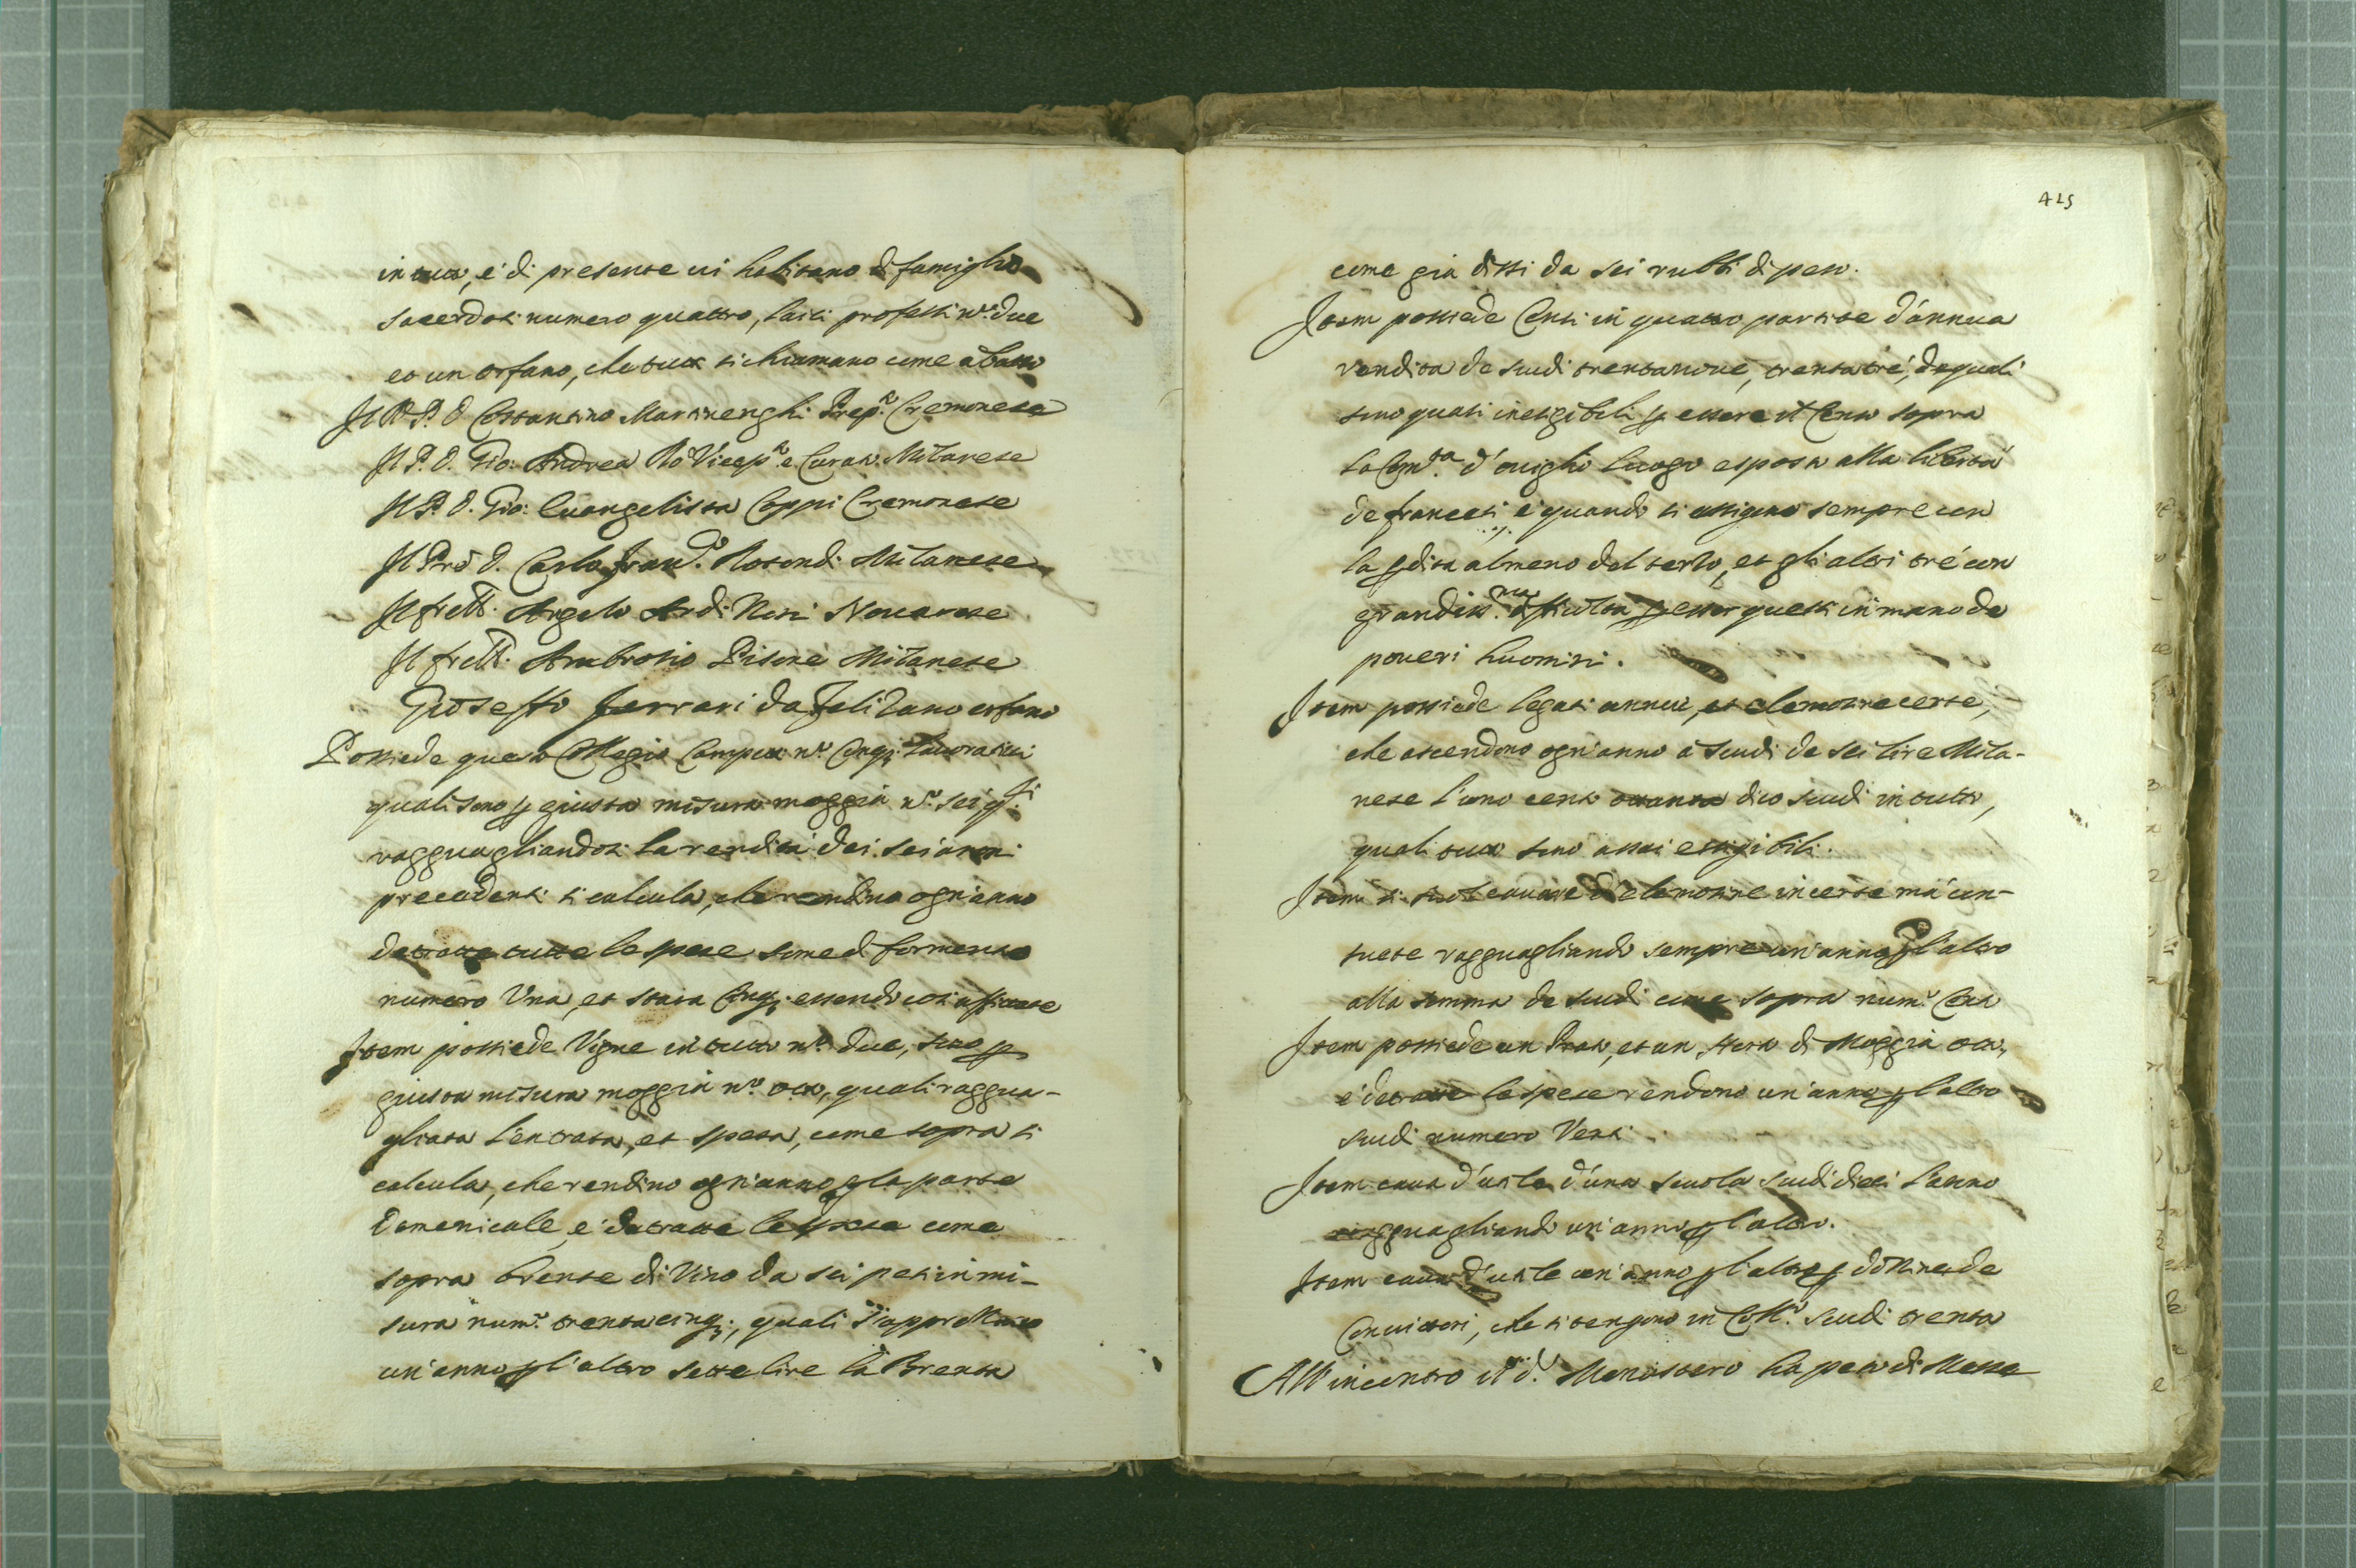 in tutto, è di presente vi habitano di famiglia
sacerdoti numero quattro, laici professi n.º due
et un orfano, che tutti si chiamano come a basso
Il R. P. D. Costantino Martinenghi Prep.º Cremonese
Il P. D. Gio: Andrea Rò Vicep.º e Curato Milanese
Il P. D. Gio: Evangelista Coppi Cremonese
Il Prõ D. Carlo Fran.co Rotondi Milanese
Il frett. Angelo Ardi Novarese
Il frett. Ambrosio Pisone Milanese
Gioseffo Ferrari da Felizano orfano
Possiede questo Collegio Campi n.º Cinq; lavorativi
quali sono p giusta misura moggia n.º sei
ragguagliandosi la rendita dei sei anni
precedenti si calcula, che rendino ogn'anno
detratte tutte le spese some di formento
numero Una, et stara Cinq; essendo così affittate
Item possiede Vigne in tutto n.º due, sono p
giusta misura moggia n.º otto, quali raggua-
gliata l'entrata, et spesa, come sopra si
calcula, che rendino ogn'anno p la parte
Domenicale, e detratte le spese come
sopra brente di Vino da sei pesi in mi-
sura num.º trentacinq;, quali s'apprettiano
un'anno p l'altro sette lire la Brenta
415
come già dissi da sei rubbi di peso.
Item possiede Censi in quattro partite d'annua
rendita de scudi trentanove, trentatrè, de quali
sono quasi inesigibili p essere il Censo sopra
la Com.tà d'Oviglio luogo esposto alla libertà
de francesi e quando si essigono sempre con
la pdita almeno del terzo, et gli altri trè con
grandiss.ma difficoltà p esser questi in mano de
poveri huomini.
Item possiede legati annui, et elemosine certe,
che ascendono ogn'anno à scudi da sei lire Mila-
nese l'uno cento ottanta dico scudi in tutto,
quali tutti sono assai essigibili.
Item si suol cavare de elemosine incerte mà con-
suete ragguagliando sempre un'anno p l'altro
alla somma de scudi come sopra num.º Cento
Item possiede un Prato, et un di Moggia otto,
e detratte le spese rendono un'anno p l'altro
scudi numero Venti.
Item cava d'utile d'una scuola scudi dieci l'anno
ragguagliando un'anno p l'altro.
Item cava d'utile un'anno p l'altro p dozzine de
Convittori, che si tengono in Coll.º scudi trenta
All'incontro il d.º Monastero ha peso di Messe